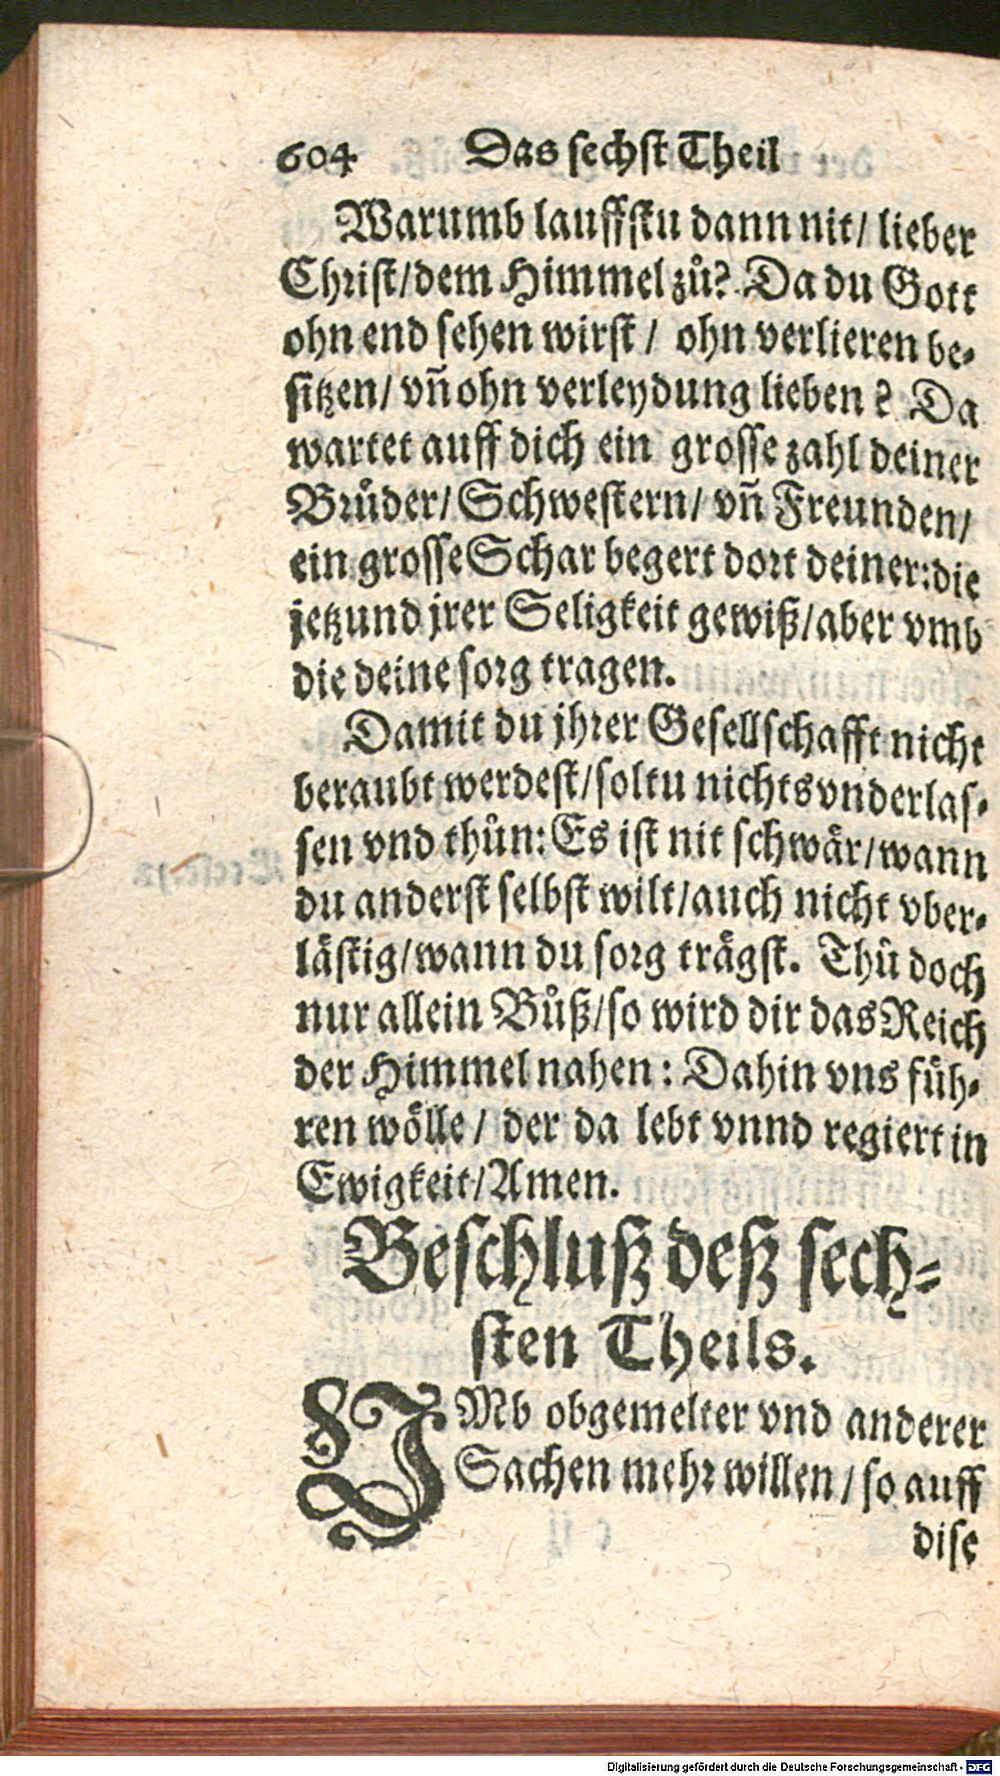 604 Das sechst Theil
Warumb lauffstu dann nit/ lieber
Christ/dem Himmel zů? Da du Gott
ohn end sehen wirst/ ohn verlieren be-
sitzen/ vñ ohn verleydung lieben? Da
wartet auff dich ein grosse zahl deiner
Brůder/ Schwestern/ vñ Freunden/
ein grosse Schar begert dort deiner: die
jetzund jrer Seligkeit gewiß/aber vmb
die deine sorg tragen.
Damit du jhrer Gesellschafft nicht
beraubt werdest/soltu nichts vnderlas-
sen vnd thůn: Es ist nit schwär/wann
du anderst selbst wilt/auch nicht vber-
lästig/wann du sorg trägst. Thů doch
nur allein Bůß/so wird dir das Reich
der Himmel nahen: Dahin vns füh-
ren wölle/ der da lebt vnnd regiert in
Ewigkeit/Amen.
Beschluß deß sech-
sten Theils.
VMb obgemelter vnd anderer
Sachen mehr willen/so auff
dise
Digitalisierung gefördert durch die Deutsche Forschungsgemeinschaft - DFG